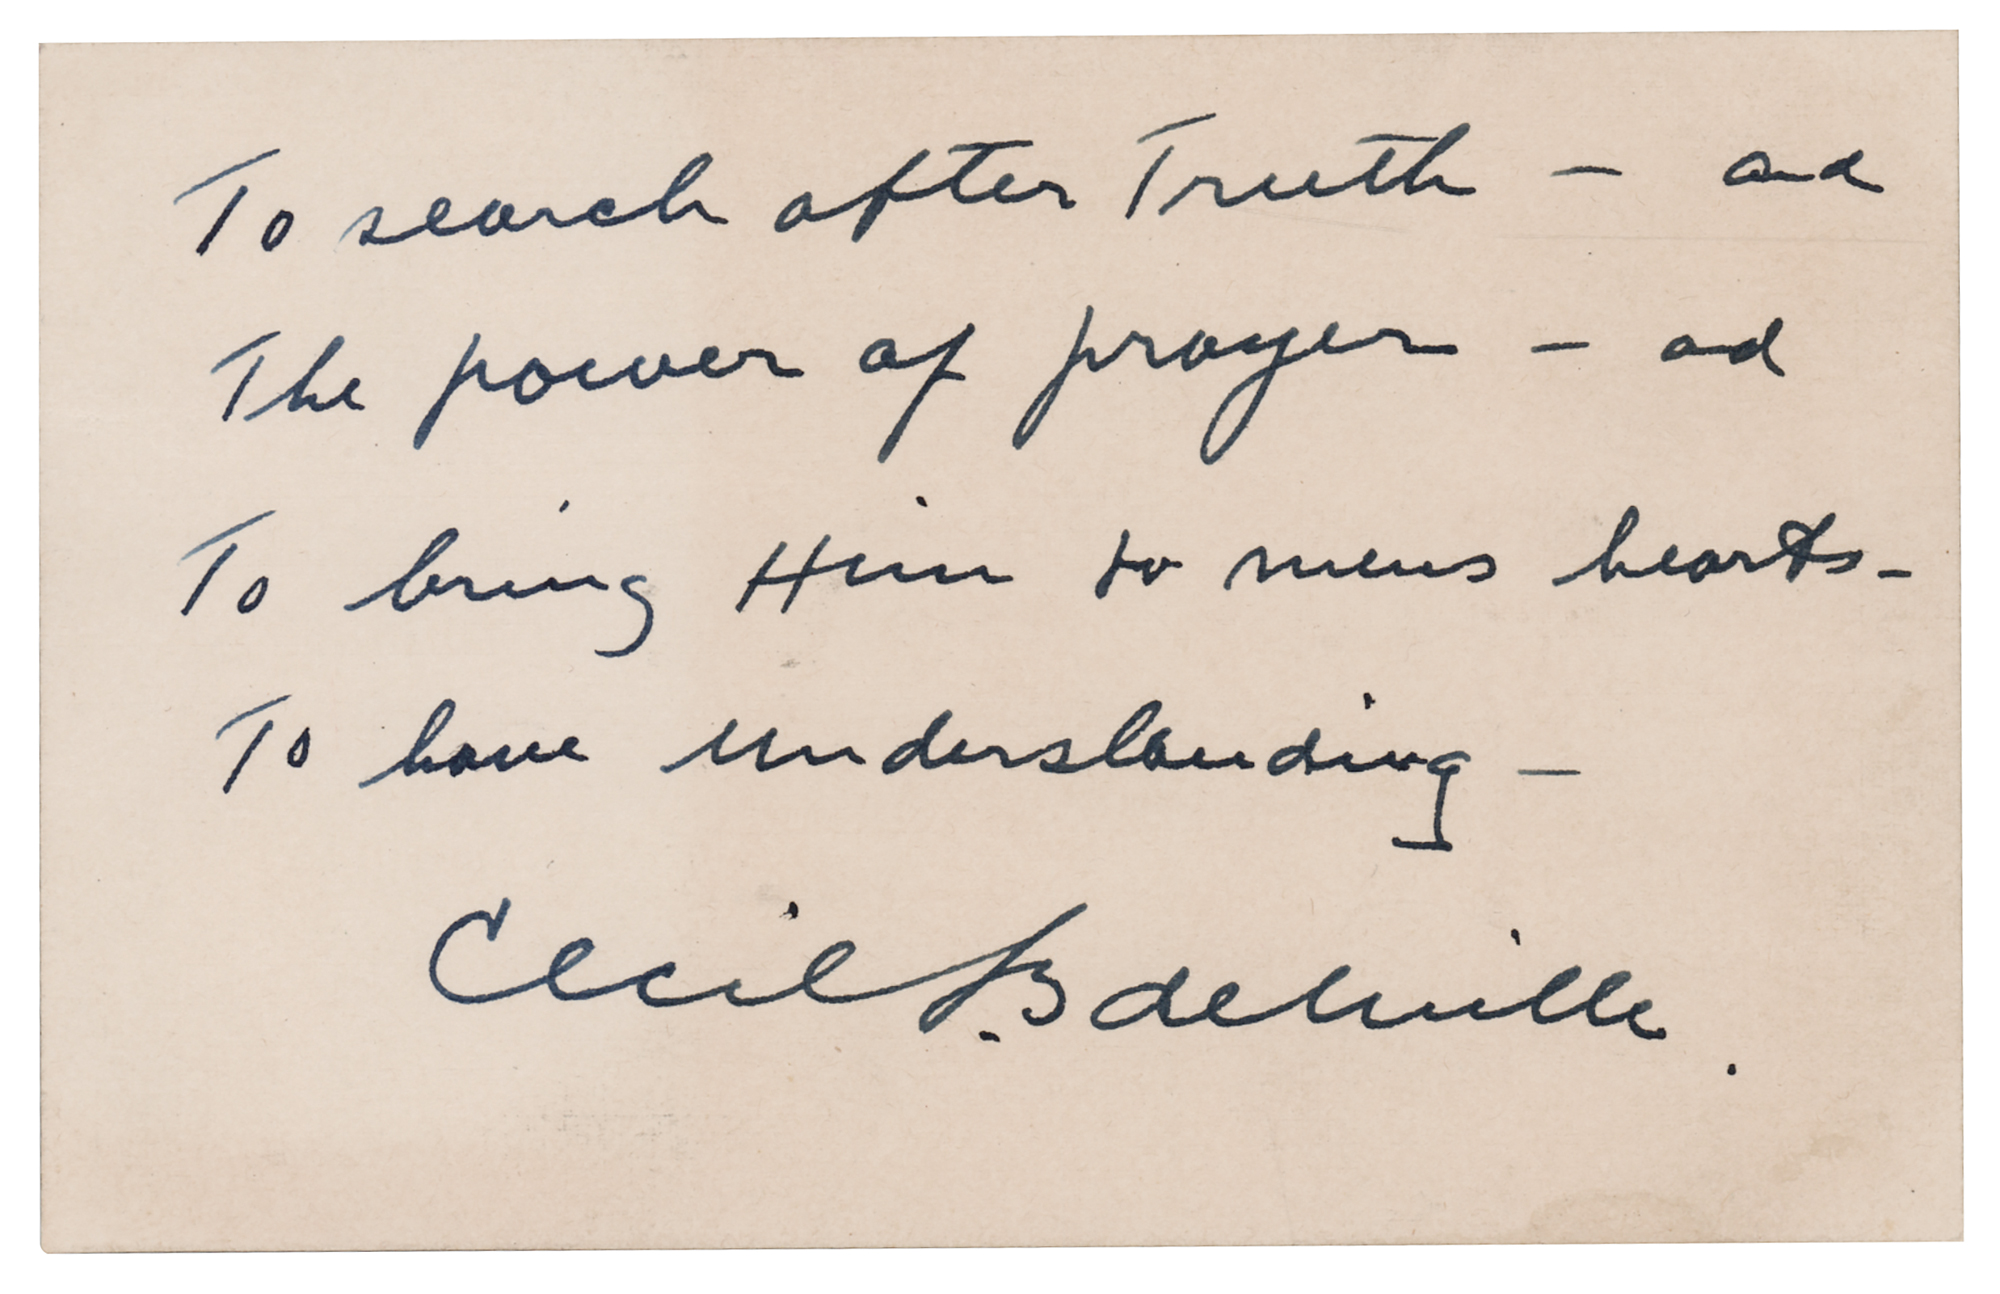 To search after Truth – and
The power of prayer – ad
To bring Him to mens hearts-
To have understanding –
Cecil B deMille.